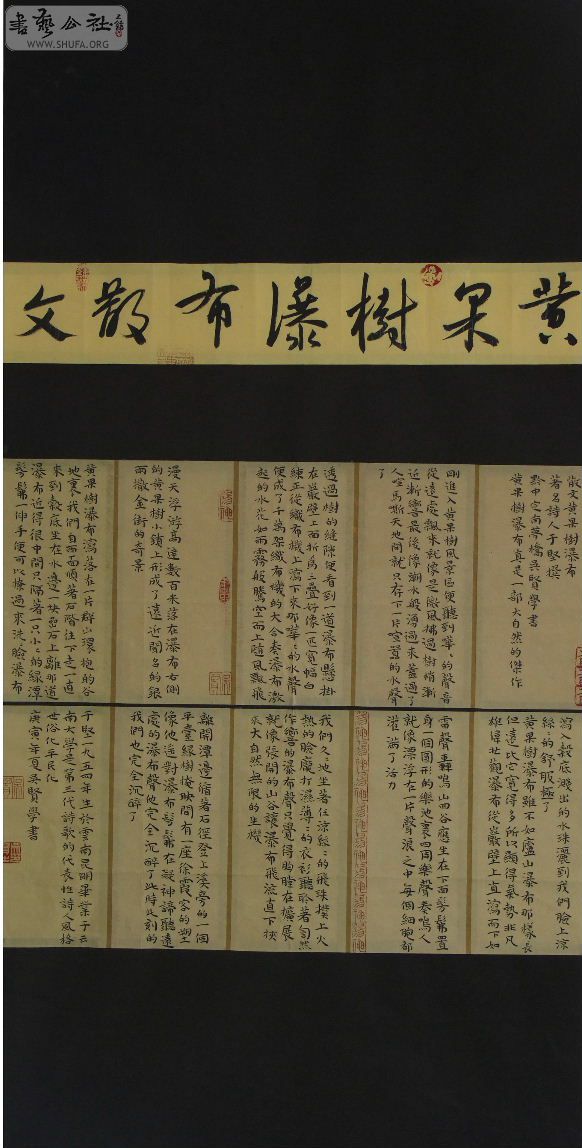 書藝公社
WWW.SHUFA.ORG
黄果樹瀑布散文
散文黄果樹瀑布
著名詩人于堅撰
黔中定南夢橋吳賢學書
黄果樹瀑布真是一部大自然的傑作
剛進入黄果樹風景區便聽到嘩々的聲音
從遠處飄來就像是微風拂過樹梢漸
近漸響最後像潮水般湧過來蓋過了
人喧馬嘶天地間就只存下一片喧囂的水聲
了
透過樹的縫隙便看到一道瀑布懸掛
在巖壁上面折爲三疊好像一匹寬幅白
練正從織布機上瀉下來那嘩々的水聲
便成了千萬架織布機的大合奏瀑布激
起的水花如雨霧般騰空而上隨風飄飛
漫天浮游高達數百米落在瀑布右側
的黄果樹小鎮上形成了遠近聞名的銀
雨撒金街的奇景
黄果樹瀑布瀉落在一片群山環抱的谷
地裏我們自西面順著石階往下走一直
來到穀底坐在水邊一塊岩石上離那道
瀑布近得很中間只隔著一只小々的綠潭
髣髴一伸手便可以掬過來洗臉瀑布
瀉入穀底濺出的水珠灑到我們臉上涼
絲々的舒服極了
黄果樹瀑布雖不如廬山瀑布那樣長
但遠比它寬得多所以顯得氣勢非凡
雄偉壯觀瀑布從巖壁上直瀉而下如
雷聲轟鳴山谷應坐在下面髣髴置
身一個圓形的樂池裏四周樂聲奏鳴人
就像漂浮在一片聲浪之中每個細胞都
灌滿了活力
我們久々地坐著任涼絲々的飛珠撲上火
熱的臉龐打濕薄々的衣衫聽聆著訇然
作響的瀑布聲只覺得胸膛在擴展
就像張開的山谷讓瀑布飛流直下挾
來大自然無限的生機
離開潭邊循著石徑登上溪旁的一個
平臺綠樹掩映間有一座徐霞客的塑
像他遙對瀑布髣髴在凝神諦聽遠
處的瀑布聲他完全沉醉了此時此刻的
我們也完全沉醉了
于堅一九五四年生於雲南昆明畢業于雲
南大學是第三代詩歌的代表性詩人風格
世俗化平民化
庚寅年夏吳賢學書